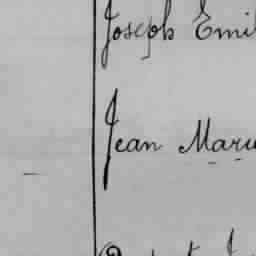 Joseph Emil
Jean Marie